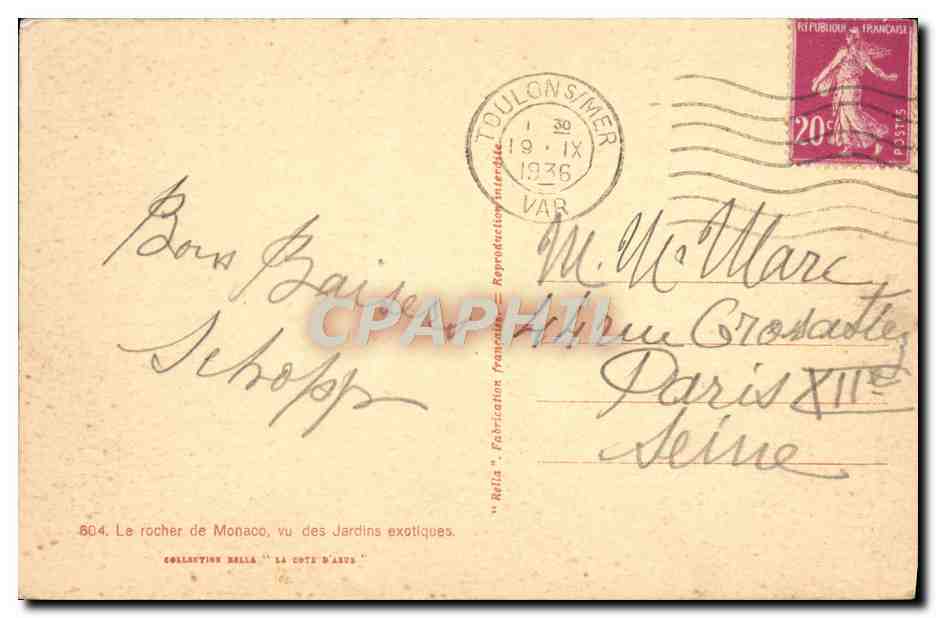 RÉPUBLIQUE FRANÇAISE
20c
POSTES
TOULON S/MER
1 30
19 · IX
1936
VAR
Bons Baisers
Schopp
M. Mc Marc
44 rue
Paris XIIe
Seine
"Rella". Fabrication française — Reproduction interdite
604. Le rocher de Monaco, vu des Jardins exotiques.
COLLECTION RELLA "LA COTE D'AZUR"
CPAPHIL